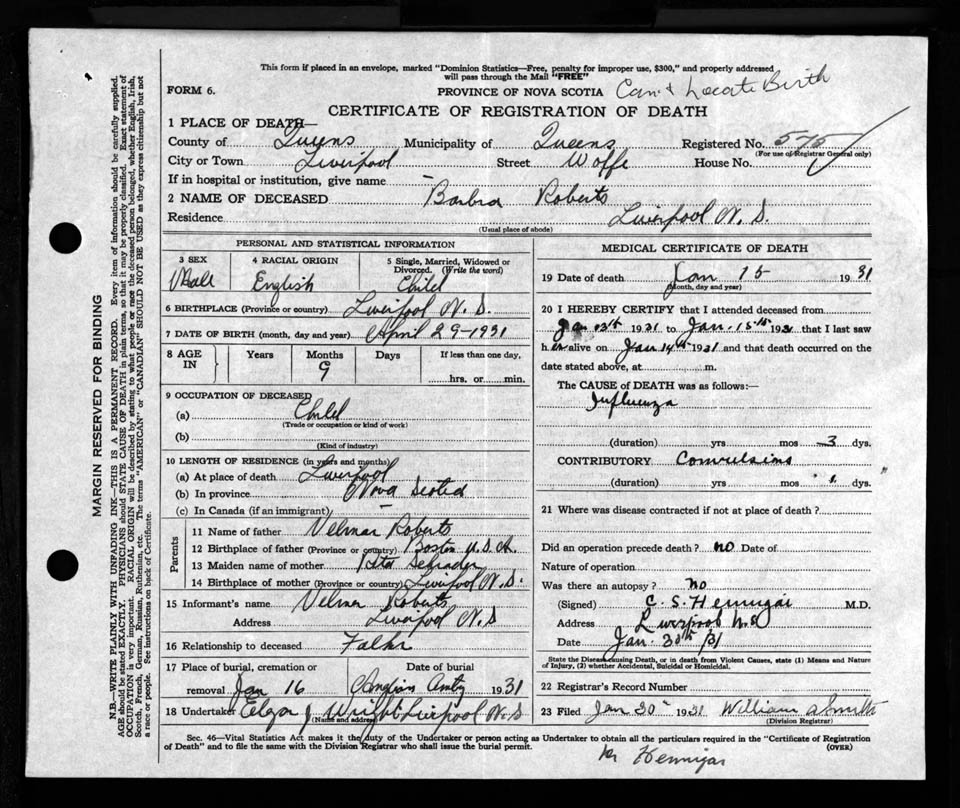 This form if placed in an envelope, marked "Dominion Statistics—Free, penalty for improper use, $300," and properly addressed
will pass through the Mail "FREE"
FORM 6.
PROVINCE OF NOVA SCOTIA Can't Locate Birth
CERTIFICATE OF REGISTRATION OF DEATH
1 PLACE OF DEATH—
County of Queens Municipality of Queens Registered No. 575
(For use of Registrar General only)
City or Town Liverpool Street Wolfe House No.
If in hospital or institution, give name —
2 NAME OF DECEASED Barbra Roberts
Residence Liverpool N. S.
(Usual place of abode)
PERSONAL AND STATISTICAL INFORMATION
3 SEX
4 RACIAL ORIGIN English
5 Single, Married, Widowed or Divorced. (Write the word)
Child
6 BIRTHPLACE (Province or country) Liverpool N. S.
7 DATE OF BIRTH (month, day and year) April 29-1931
8 AGE IN Years Months Days If less than one day,
9
hrs. or min.
9 OCCUPATION OF DECEASED
(a) Child
(Trade or occupation or kind of work)
(b)
(Kind of industry)
10 LENGTH OF RESIDENCE (in years and months)
(a) At place of death Liverpool
(b) In province Nova Scotia
(c) In Canada (if an immigrant) —
Parents
11 Name of father Velmar Roberts
12 Birthplace of father (Province or country) Boston U.S.A.
13 Maiden name of mother
14 Birthplace of mother (Province or country) Liverpool N.S.
15 Informant's name Velmer Roberts
Address Liverpool N.S
16 Relationship to deceased Father
17 Place of burial, cremation or removal Date of burial
Jan 16 1931
18 Undertaker Wright Liverpool N.S
(Name and address)
MEDICAL CERTIFICATE OF DEATH
19 Date of death Jan 15 1931
(Month, day and year)
20 I HEREBY CERTIFY that I attended deceased from
Jan 13th 1931 to Jan. 15th 1931 that I last saw
her alive on Jan 14th 1931 and that death occurred on the
date stated above, at m.
The CAUSE of DEATH was as follows:—
Influenza
(duration) yrs mos 3 dys.
CONTRIBUTORY Convulsions
(duration) yrs mos 1 dys.
21 Where was disease contracted if not at place of death?
Did an operation precede death? no Date of
Nature of operation
Was there an autopsy? no
(Signed) C. S. Hennigar M.D.
Address Liverpool N.S
Date Jan. 30th /31
State the Disease causing Death, or in death from Violent Causes, state (1) Means and Nature
of Injury, (2) whether Accidental, Suicidal or Homicidal.
22 Registrar's Record Number
23 Filed Jan 30 1931 William Smith
(Division Registrar)
Sec. 46—Vital Statistics Act makes it the duty of the Undertaker or person acting as Undertaker to obtain all the particulars required in the "Certificate of Registration
of Death" and to file the same with the Division Registrar who shall issue the burial permit.
(OVER)
Hennigar
MARGIN RESERVED FOR BINDING
N.B.—WRITE PLAINLY WITH UNFADING INK—THIS IS A PERMANENT RECORD. Every item of information should be carefully supplied.
AGE should be stated EXACTLY. PHYSICIANS should STATE CAUSE OF DEATH in plain terms, so that it may be properly classified. Exact statement of
OCCUPATION is very important. RACIAL ORIGIN will be described by stating to what people or race the deceased person belonged, whether English, Irish,
Scotch, French, German, Russian, Ruthenian, etc. The terms "AMERICAN" or "CANADIAN" SHOULD NOT BE USED as they express citizenship but not
a race or people. See instructions on back of Certificate.